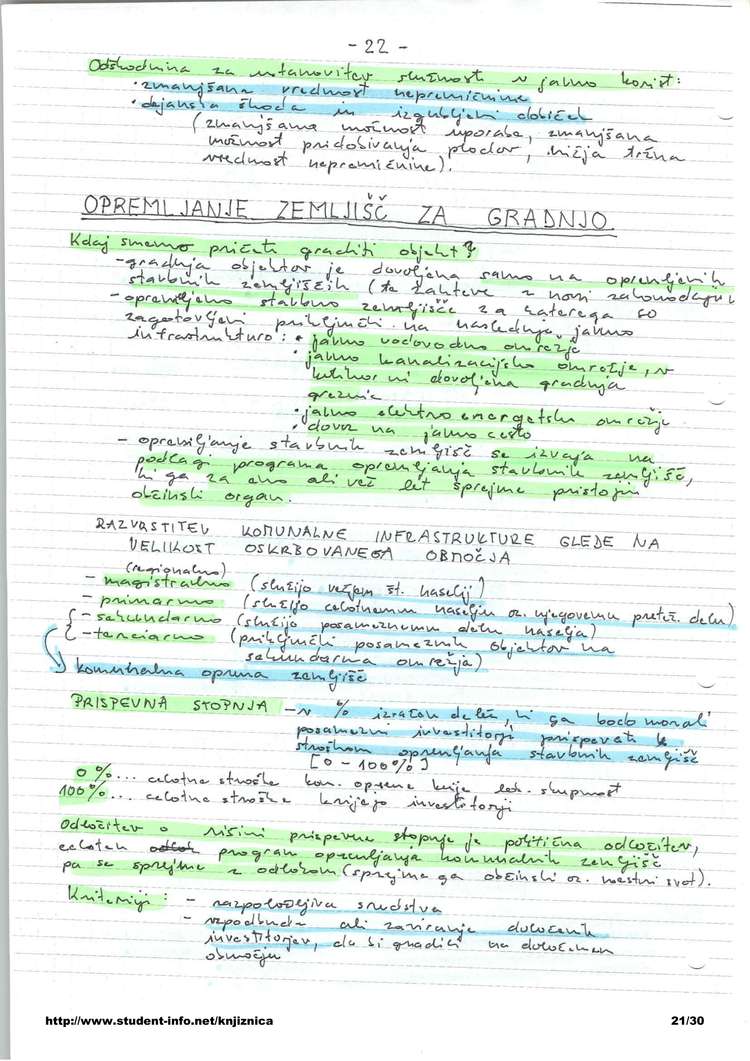 - 22 -
Odškodnina za ustanovitev služnosti v javno korist:
• zmanjšana vrednost nepremičnine
• dejanska škoda in izgubljeni dobiček
(zmanjšana možnost uporabe, zmanjšana
možnost pridobivanja plodov, nižja tržna
vrednost nepremičnine).
OPREMLJANJE ZEMLJIŠČ ZA GRADNJO
Kdaj smemo pričeti graditi objekt?
- gradnja objektov je dovoljena samo na opremljenih
stavbnih zemljiščih (te zahteve z novi zakonodajji
- opremljeno stavbno zemljišče za katerega so
zagotovljeni priključki na naslednjo javno
infrastrukturo: • javno vodovodno omrežje
• javno kanalizacijsko omrežje, v
kolikor ni dovoljena gradnja
greznic
• javno elektroenergetsko omrežje
• dovoz na javno cesto
- opremljanje stavbnih zemljišč se izvaja na
podlagi programa opremljanja stavbnih zemljišč,
ki ga za eno ali več let sprejme pristojni
občinski organ.
RAZVRSTITEV KOMUNALNE INFRASTRUKTURE GLEDE NA
VELIKOST OSKRBOVANEGA OBMOČJA
(regionalno)
- magistralno (služijo večjem št. naselij)
- primarno (služijo celotnemu naselju oz. njegovemu pretež. delu)
- sekundarno (služijo posameznemu delu naselja)
- terciarno (priključki posameznih objektov na
sekundarna omrežja)
komunalna oprema zemljišč
PRISPEVNA STOPNJA - v % izražen delež, ki ga bodo morali
posamezni investitorji prispevati k
stroškom opremljanja stavbnih zemljišč
[0 - 100%]
0 %... celotne stroške kom. opreme krije lok. skupnost
100%... celotne stroške krijejo investitorji
Odločitev o višini prispevne stopnje je politična odločitev,
celoten program opremljanja komunalnih zemljišč
pa se sprejme z odlokom (sprejme ga občinski oz. mestni svet).
Kriteriji: - razpoložljiva sredstva
- vzpodbuda ali zaviranje določenih
investitorjev, da bi gradili na določenem
območju
http://www.student-info.net/knjiznica 21/30